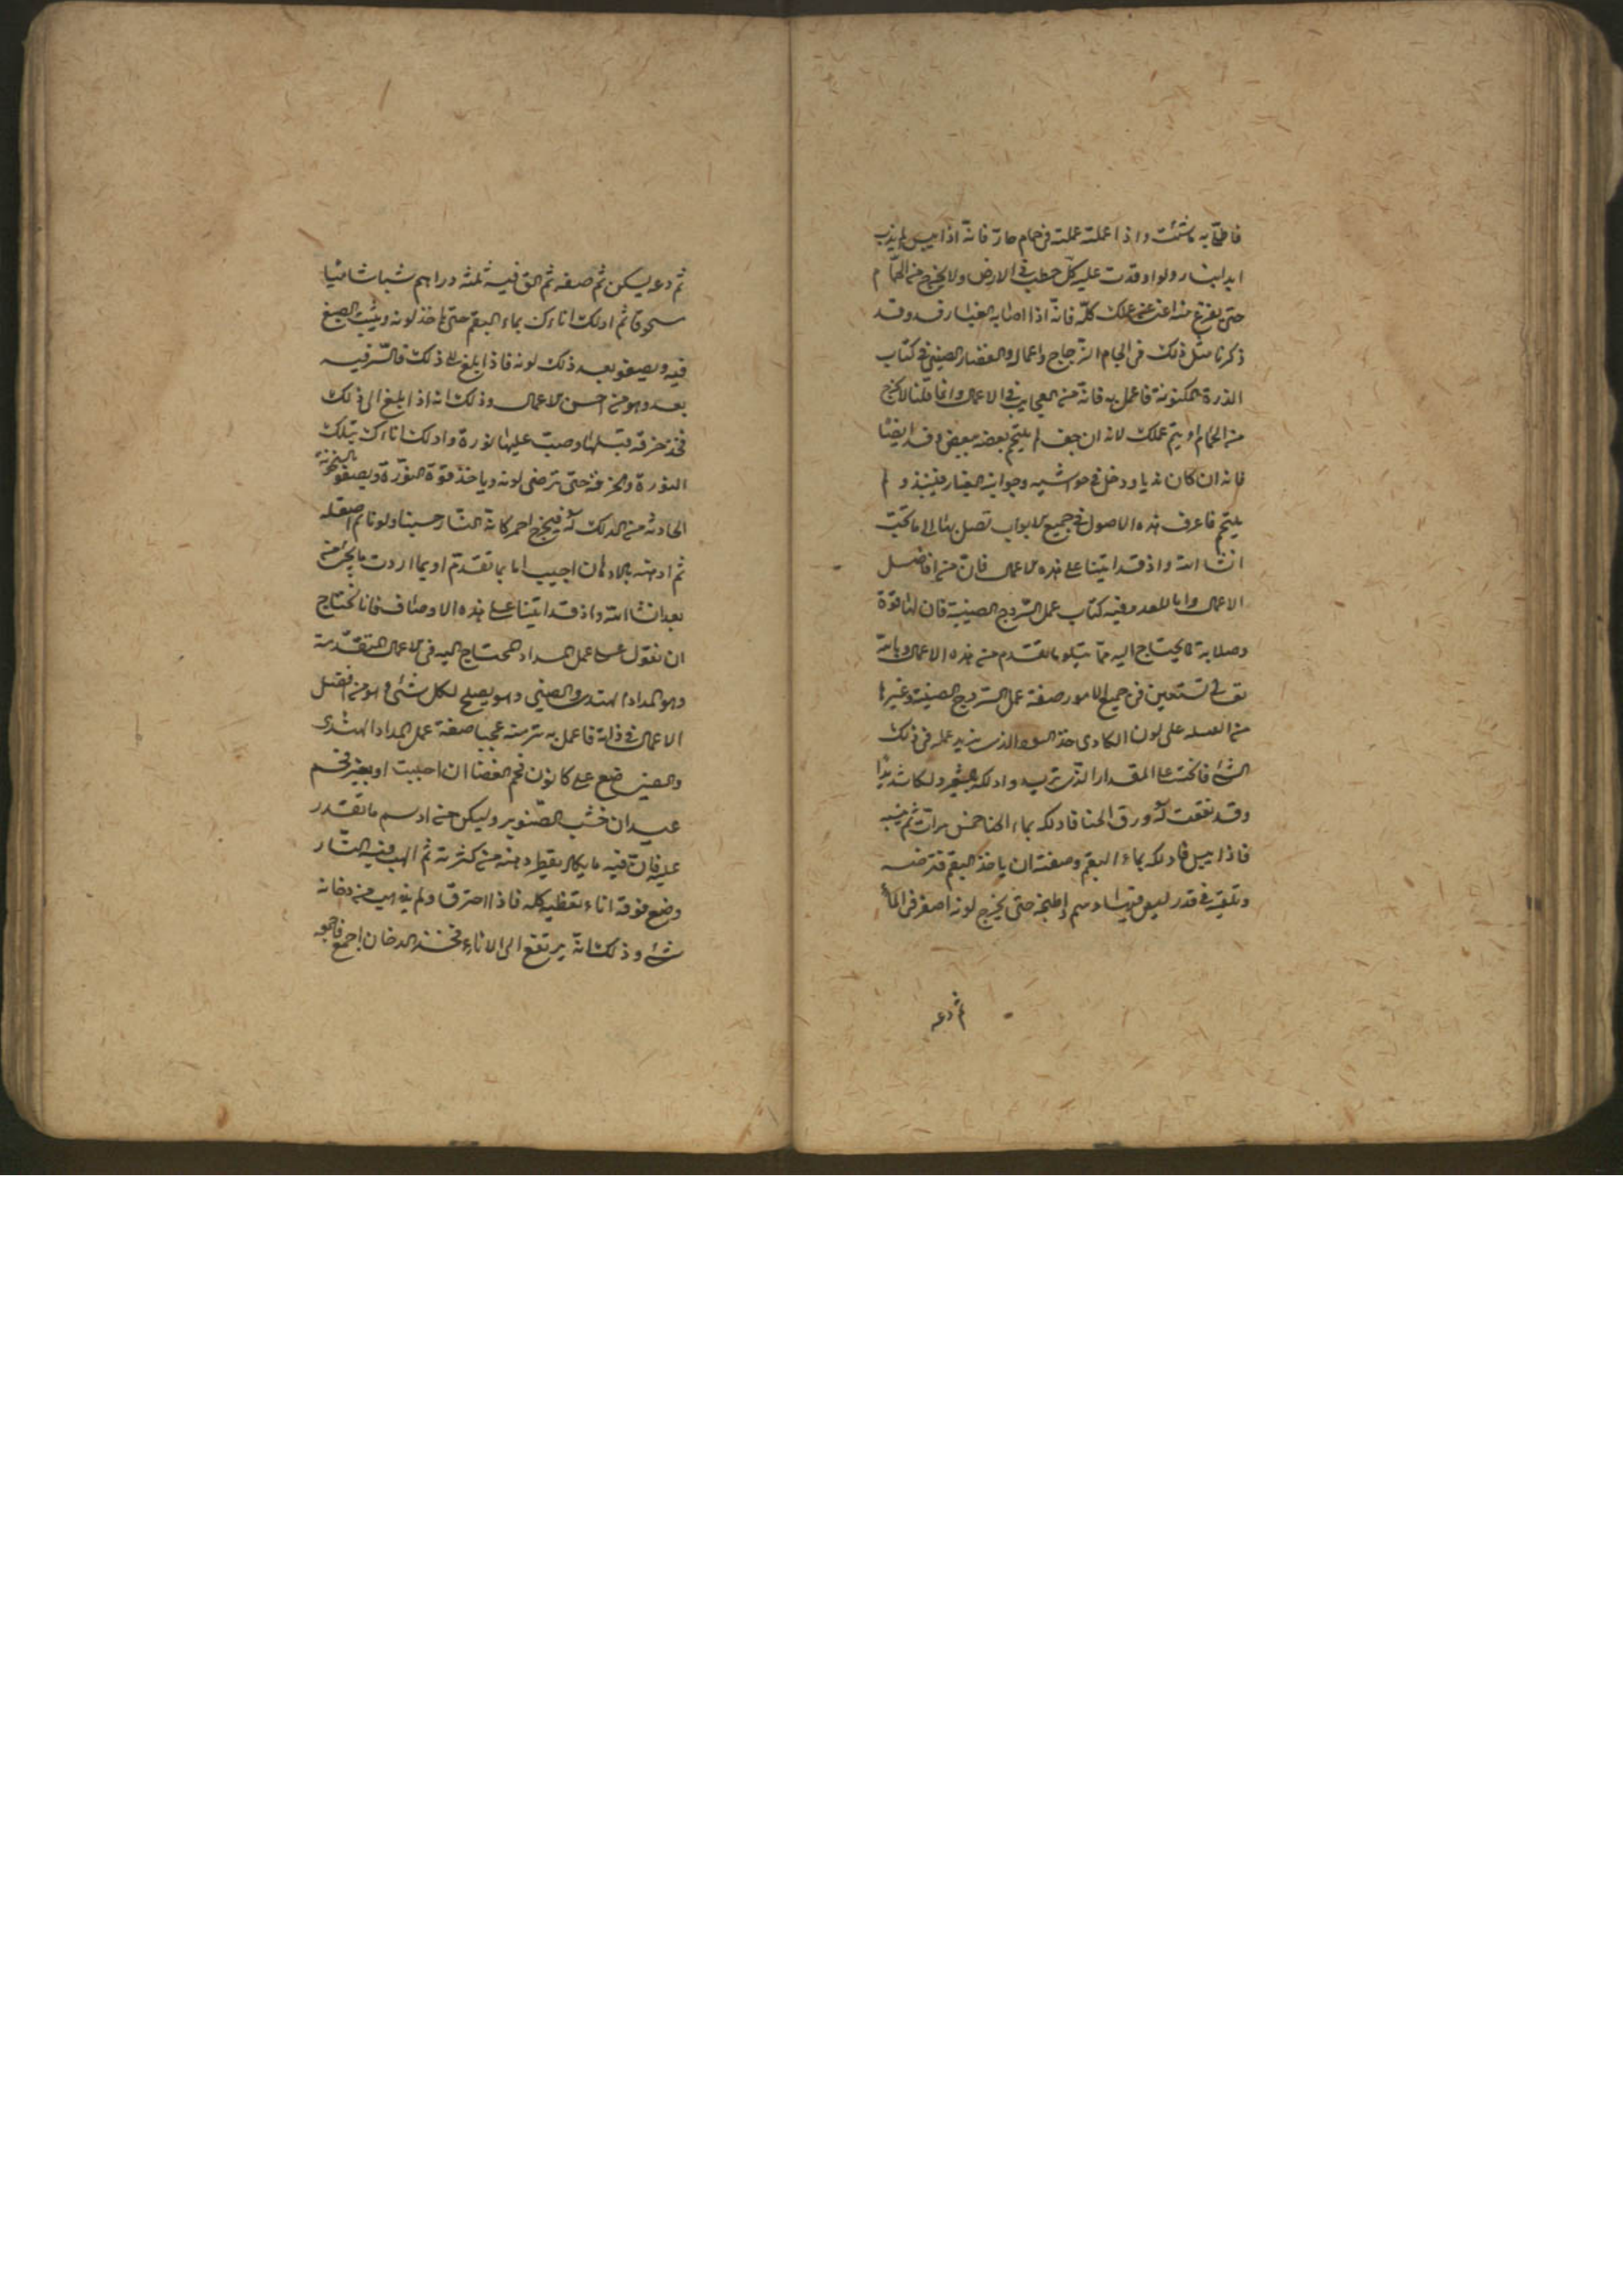 فاطل به ما شئت واذا عملته عملته فى حمام حار فانه اذا يبس لم يذب
ابدا بنار ولو اوقدت عليه كل حطب فى الارض ولا يخرج من الحمام
حتى يفرغ منه اعنى عملك كله فانه اذا اصابه الغبار فسد وقد
ذكرنا مثل ذلك فى الجام الزجاج واعمال الغضار الصينى فى كتاب
الدرة المكنونة فاعمل به فانه من العجايب فى الاعمال وانما قلنا لا يخرج
من الحمام او يتم عملك لانه ان جف لم يلتحم بعضه ببعض وفسد ايضا
فانه ان كان نديا ودخل فى حواشيه وجوانبه الغبار ولم
يلتحم فاعرف هذه الاصول فى جميع الابواب تصل بها الى ما تحب
انشا الله واذ قد اتينا على هذه الاعمال فان من افاضل
الاعمال كتاب عمل السروج الصينية فان لها قوة
وصلابة يحتاج اليه مما يتلو ما تقدم من هذه الاعمال وبالله
تعالى نستعين فى جميع الامور صفة عمل السروج الصينية وغيرها
على لون الكادى خذ الذى تريد عمله فى ذلك
الشئ فانحته على المقدار الذى تريد وادلكه دلكا شديدا
وقد نقعت له ورق الحنا فادلكه بماء الحنا خمس مرات ثم
فاذا يبس فادلكه بماء البقم وصفته ان ياخذ البقم فترضه
وتلقيه فى قدر ليس فيها دسم واطبخه حتى يخرج لونه اصفر فى الماء
ثم دعه
ثم دعه يسكن ثم صفه ثم الق فيه ثلثة دراهم شبا شاميا
مسحوقا ثم ادلك اناءك بماء البقم حتى ياخذ لونه ويثبت الصبغ
فيه ويصفو بعد ذلك لونه فاذا ابلغ الى ذلك فالسر فيه
بعد وهو من احسن الاعمال وذلك انه اذا ابلغ الى ذلك
فخذ خرقه فبلها وصب عليها نورة وادلك اناءك بتلك
النورة والخرقة حتى ترضى لونه وياخذ قوة النورة ويصفو
الحادثه من الدلك له فيخرج احمر كانه النار حسنا ولونا ثم اصقله
ثم ادهنه بالادهان اجيب اما بما تقدم او بما اردت
بعد انشا الله واذ قد اتينا على هذه الاوصاف فانا نحتاج
ان نقول على عمل المداد المحتاج اليه فى الاعمال المتقدمة
وهو المداد الهندى والصينى وهو يصلح لكل شئ وهو من افضل
الاعمال فى ذاته فاعمل به تر منه عجبا صفة عمل المداد الهندى
والصينى ضع على كانون فحم الغضا ان احببت او بغير فحم
عيدان خشب الصنوبر وليكن من ادسم ما تقدر
عليه فان فيه ما يكاد يقطر دهنه من كثرته ثم الهب فيه النار
وضع فوقه اناء يغطيه كله فاذا احترق ولم يذهب من دخانه
شئ وذلك انه يرتفع الى الاناء فخذ الدخان اجمع